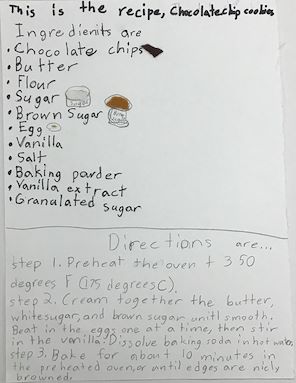 This is the recipe, Chocolate chip cookies
Ingredienits are
• Chocolate chips
• Butter
• Flour
• Sugar
• Brown Sugar
• Egg
• Vanilla
• Salt
• Baking powder
• Vanilla extract
• Granulated Sugar
Directions are...
step 1. Preheat the oven t 350
degrees F (175 degrees C).
step 2. Cream together the butter,
white sugar, and brown sugar unitl smooth.
Beat in the eggs one at a time, then stir
in the vanilla. Dissolve baking soda in hot water
step 3. Bake for about 10 minutes in
the preheated oven, or until edges are nicly
browned.